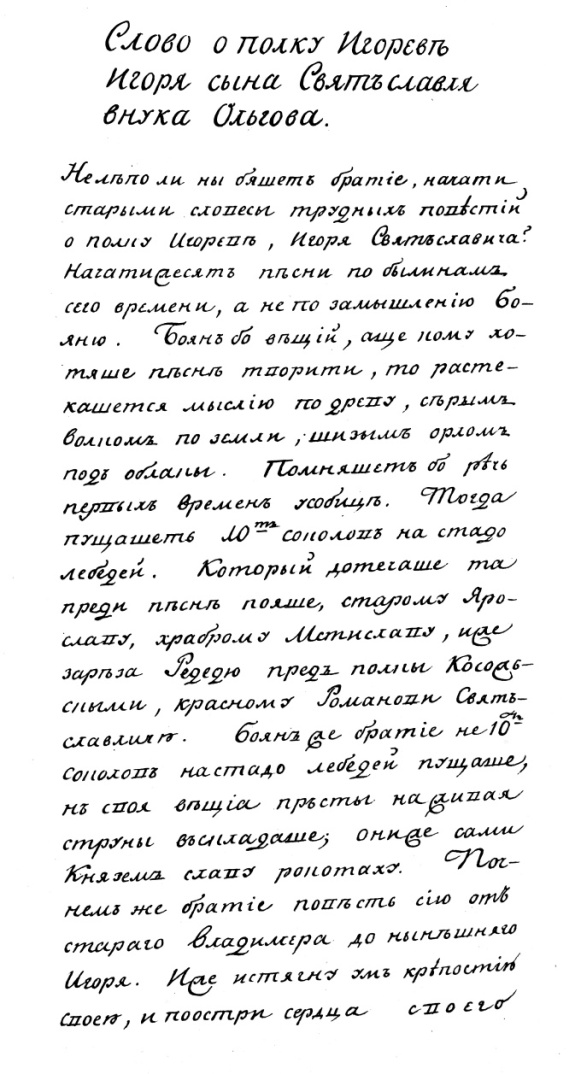 Слово о полку Игоревѣ
Игоря сына Святъславля
внука Ольгова.
Нелѣпо ли ны бяшетъ братіе, начати
старыми словесы трудныхъ повѣстий
о полку Игоревѣ, Игоря Святъславича?
Начатижесятъ пѣсни по былинамъ
сего времени, а не по замышленію Бо-
яню. Боянъ бо вѣщій, аще кому хо-
тяше пѣснь творити, то расте-
кашется мыслію по древу, сѣрымъ
волкомъ по земли, шизымъ орломъ
подъ облакы. Помняшетъ бо рѣчь
первыхъ временъ усобицѣ. Тогда
пущашеть 10ть соколовъ на стадо
лебедей. Который дотечаше та
преди пѣснь пояше, старому Яро-
славу, храброму Мстиславу, иже
зарѣза Редедю предъ полкы Косожь-
скыми, красному Романови Свять-
славличю. Боянъ же братіе не 10ть
соколовъ на стадо лебедей пущаше,
нъ своя вѣщіа пръсты на живая
струны въскладаше; они же сами
Княземъ славу рокотаху. Поч-
немъ же братіе повѣсть сію отъ
стараго Владимера до нынѣшняго
Игоря. Иже истягну умъ крѣпостію
своею, и поостри сердца своего